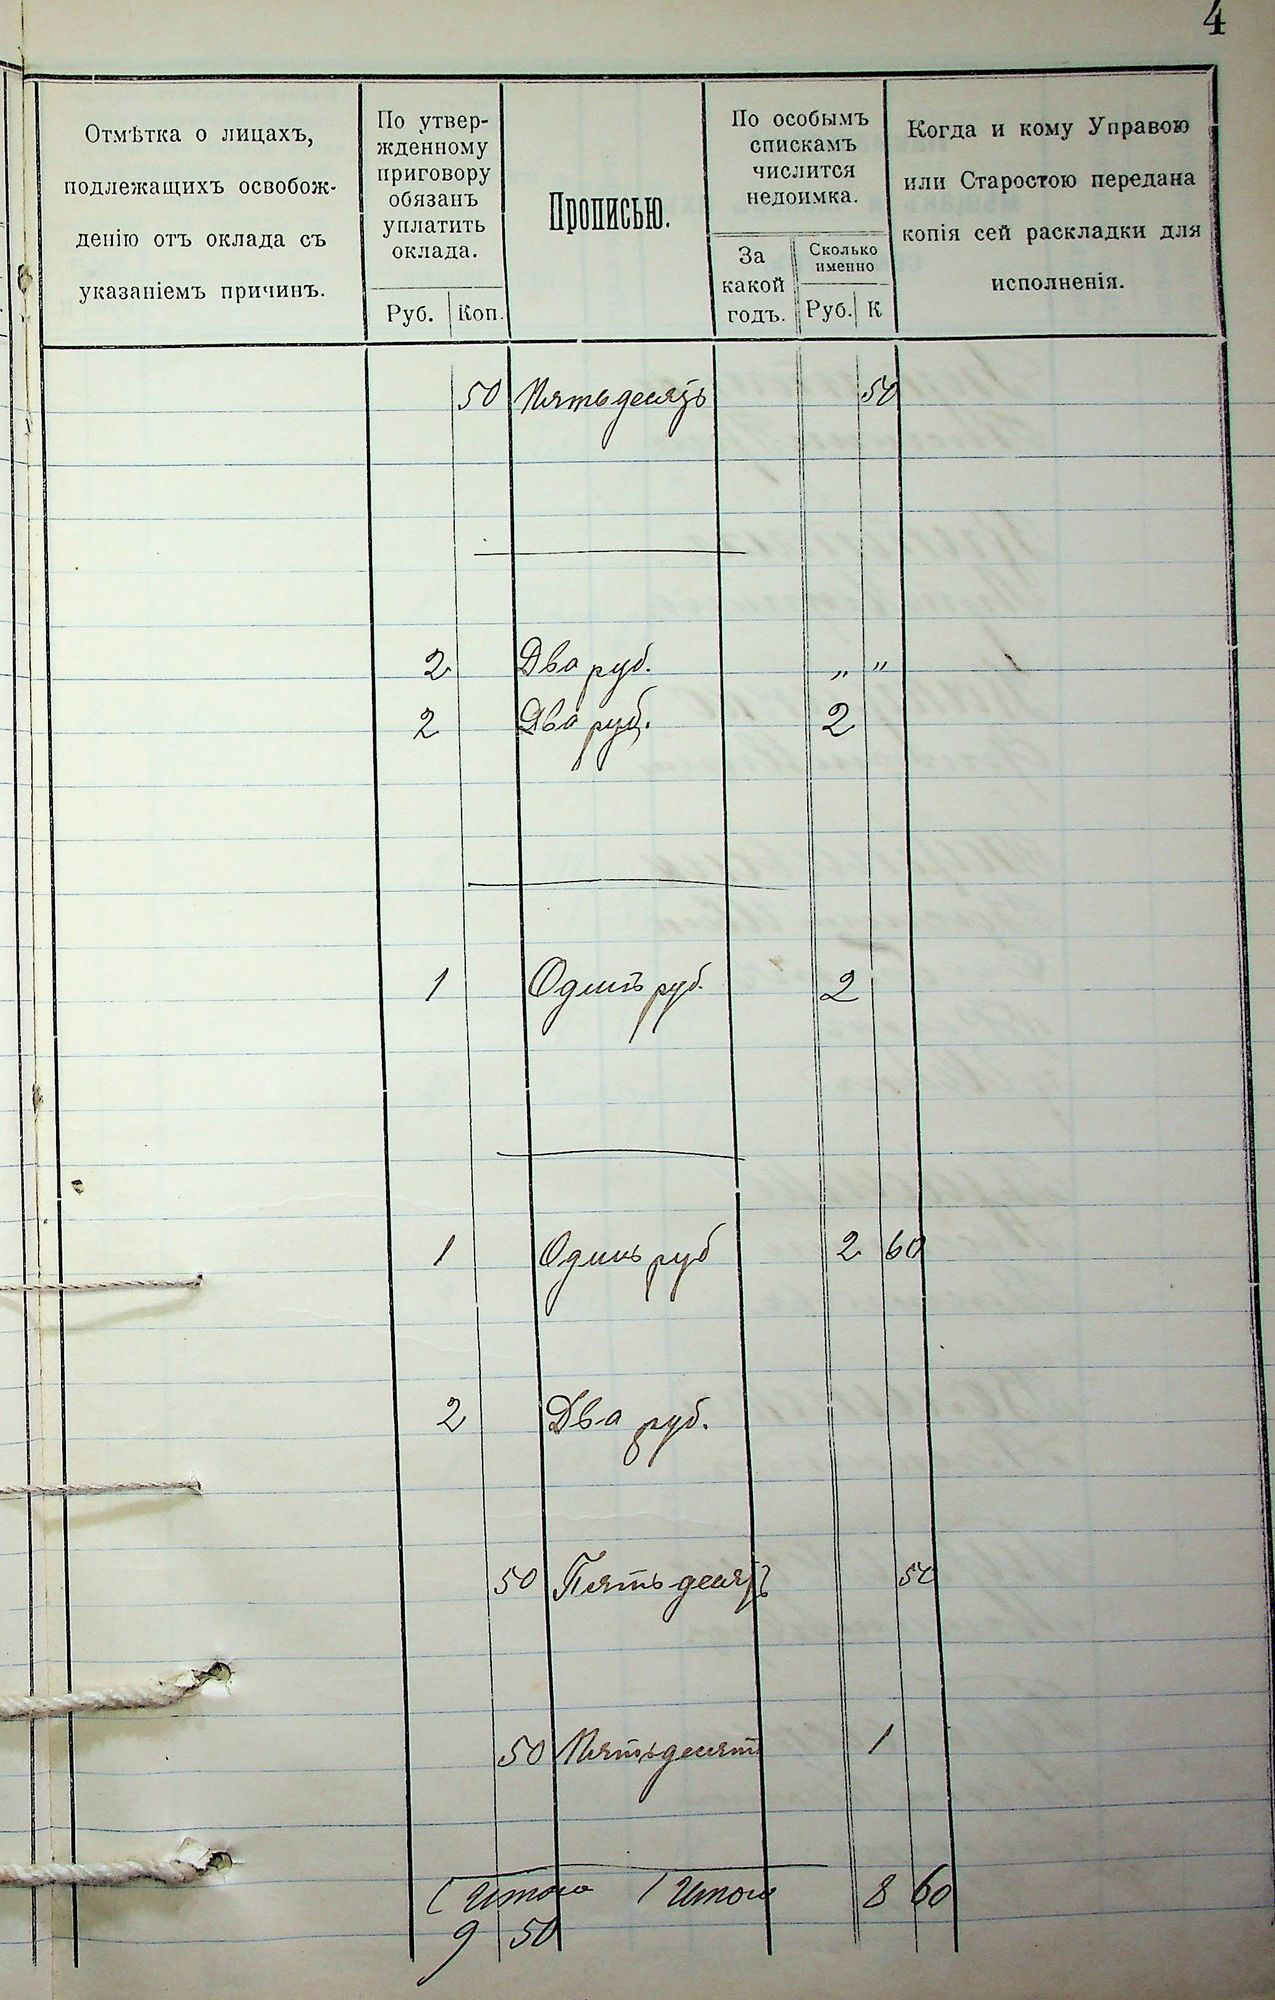 4
Отмѣтка о лицахъ,
подлежащихъ освобож-
денію отъ оклада съ
указаніемъ причинъ.
По утвер-
жденному
приговору
обязанъ
уплатить
оклада.
Руб. Коп.
Прописью.
По особымъ
спискамъ
числится
недоимка.
За
какой
годъ.
Сколько
именно
Руб. К
Когда и кому Управою
или Старостою передана
копія сей раскладки для
исполненія.
50 Пятьдесятъ 50
2 Два руб. " "
2 Два руб. 2
1 Одинъ руб. 2
1 Одинъ руб 2 60
2 Два руб.
50 Пятьдесятъ 50
50 Пятьдесят 1
Итого Итого 8 60
9 50